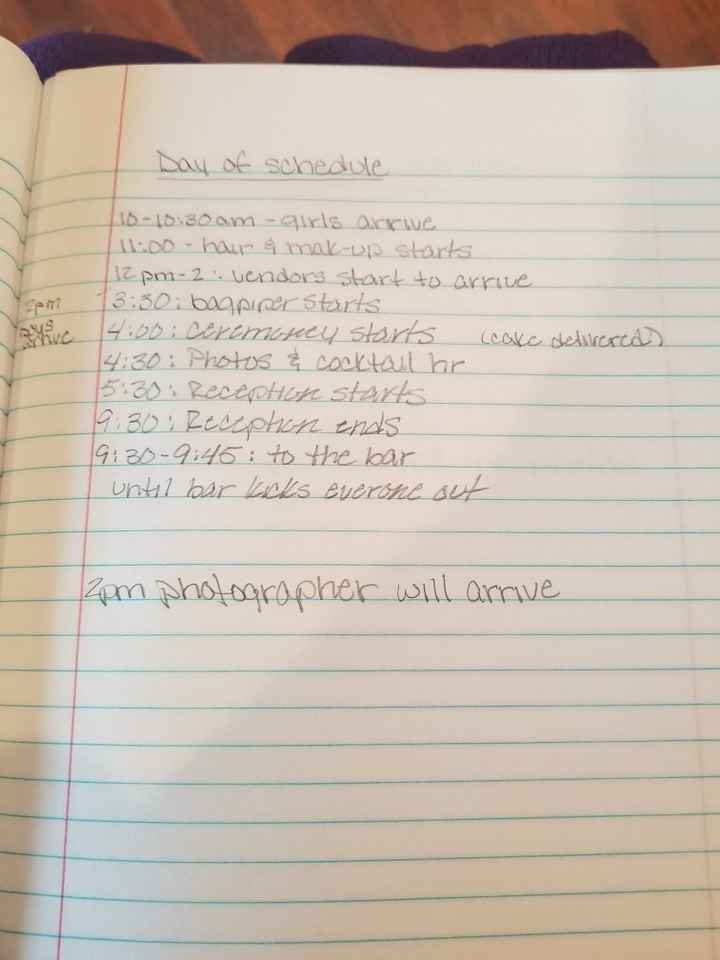 Day of schedule
10-10:30am - girls arrive
11:00 - hair & mak-up starts
12 pm-2: vendors start to arrive
3:30: bagpiper starts
4:00: Ceremoney starts (cake delivered)
4:30: Photos & cocktail hr
5:30: Reception starts
9:30: Reception ends
9:30-9:45: to the bar
until bar kicks everone out
2pm photographer will arrive